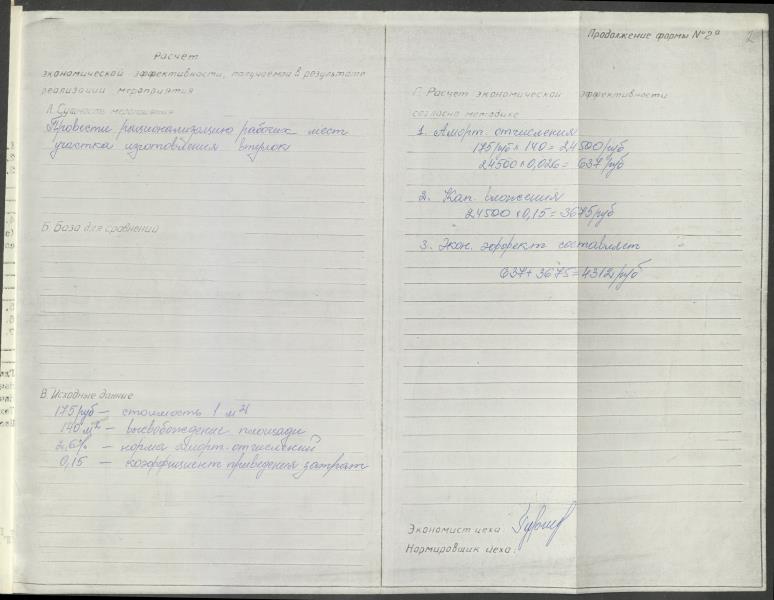 Расчет
экономической эффективности, получаемой в результате
реализации мероприятия
А. Сущность мероприятия
Провести рационализацию рабочих мест
участка изготовления втулок
Б. База для сравнений
В. Исходные данные
175 руб — стоимость 1 м²
140 м² — высвобождение площади
2,6% — норма аморт. отчислений
0,15 — коэффициент приведения затрат
Продолжение формы №2а
2
Г. Расчет экономической эффективности
согласно методике
1. Аморт. отчисления
175 руб × 140 = 24500 руб
24500 × 0,026 = 637 руб
2. Кап. вложения
24500 × 0,15 = 3675 руб
3. Экон. эффект составляет
637 + 3675 = 4312 руб
Экономист цеха
Нормировщик цеха: